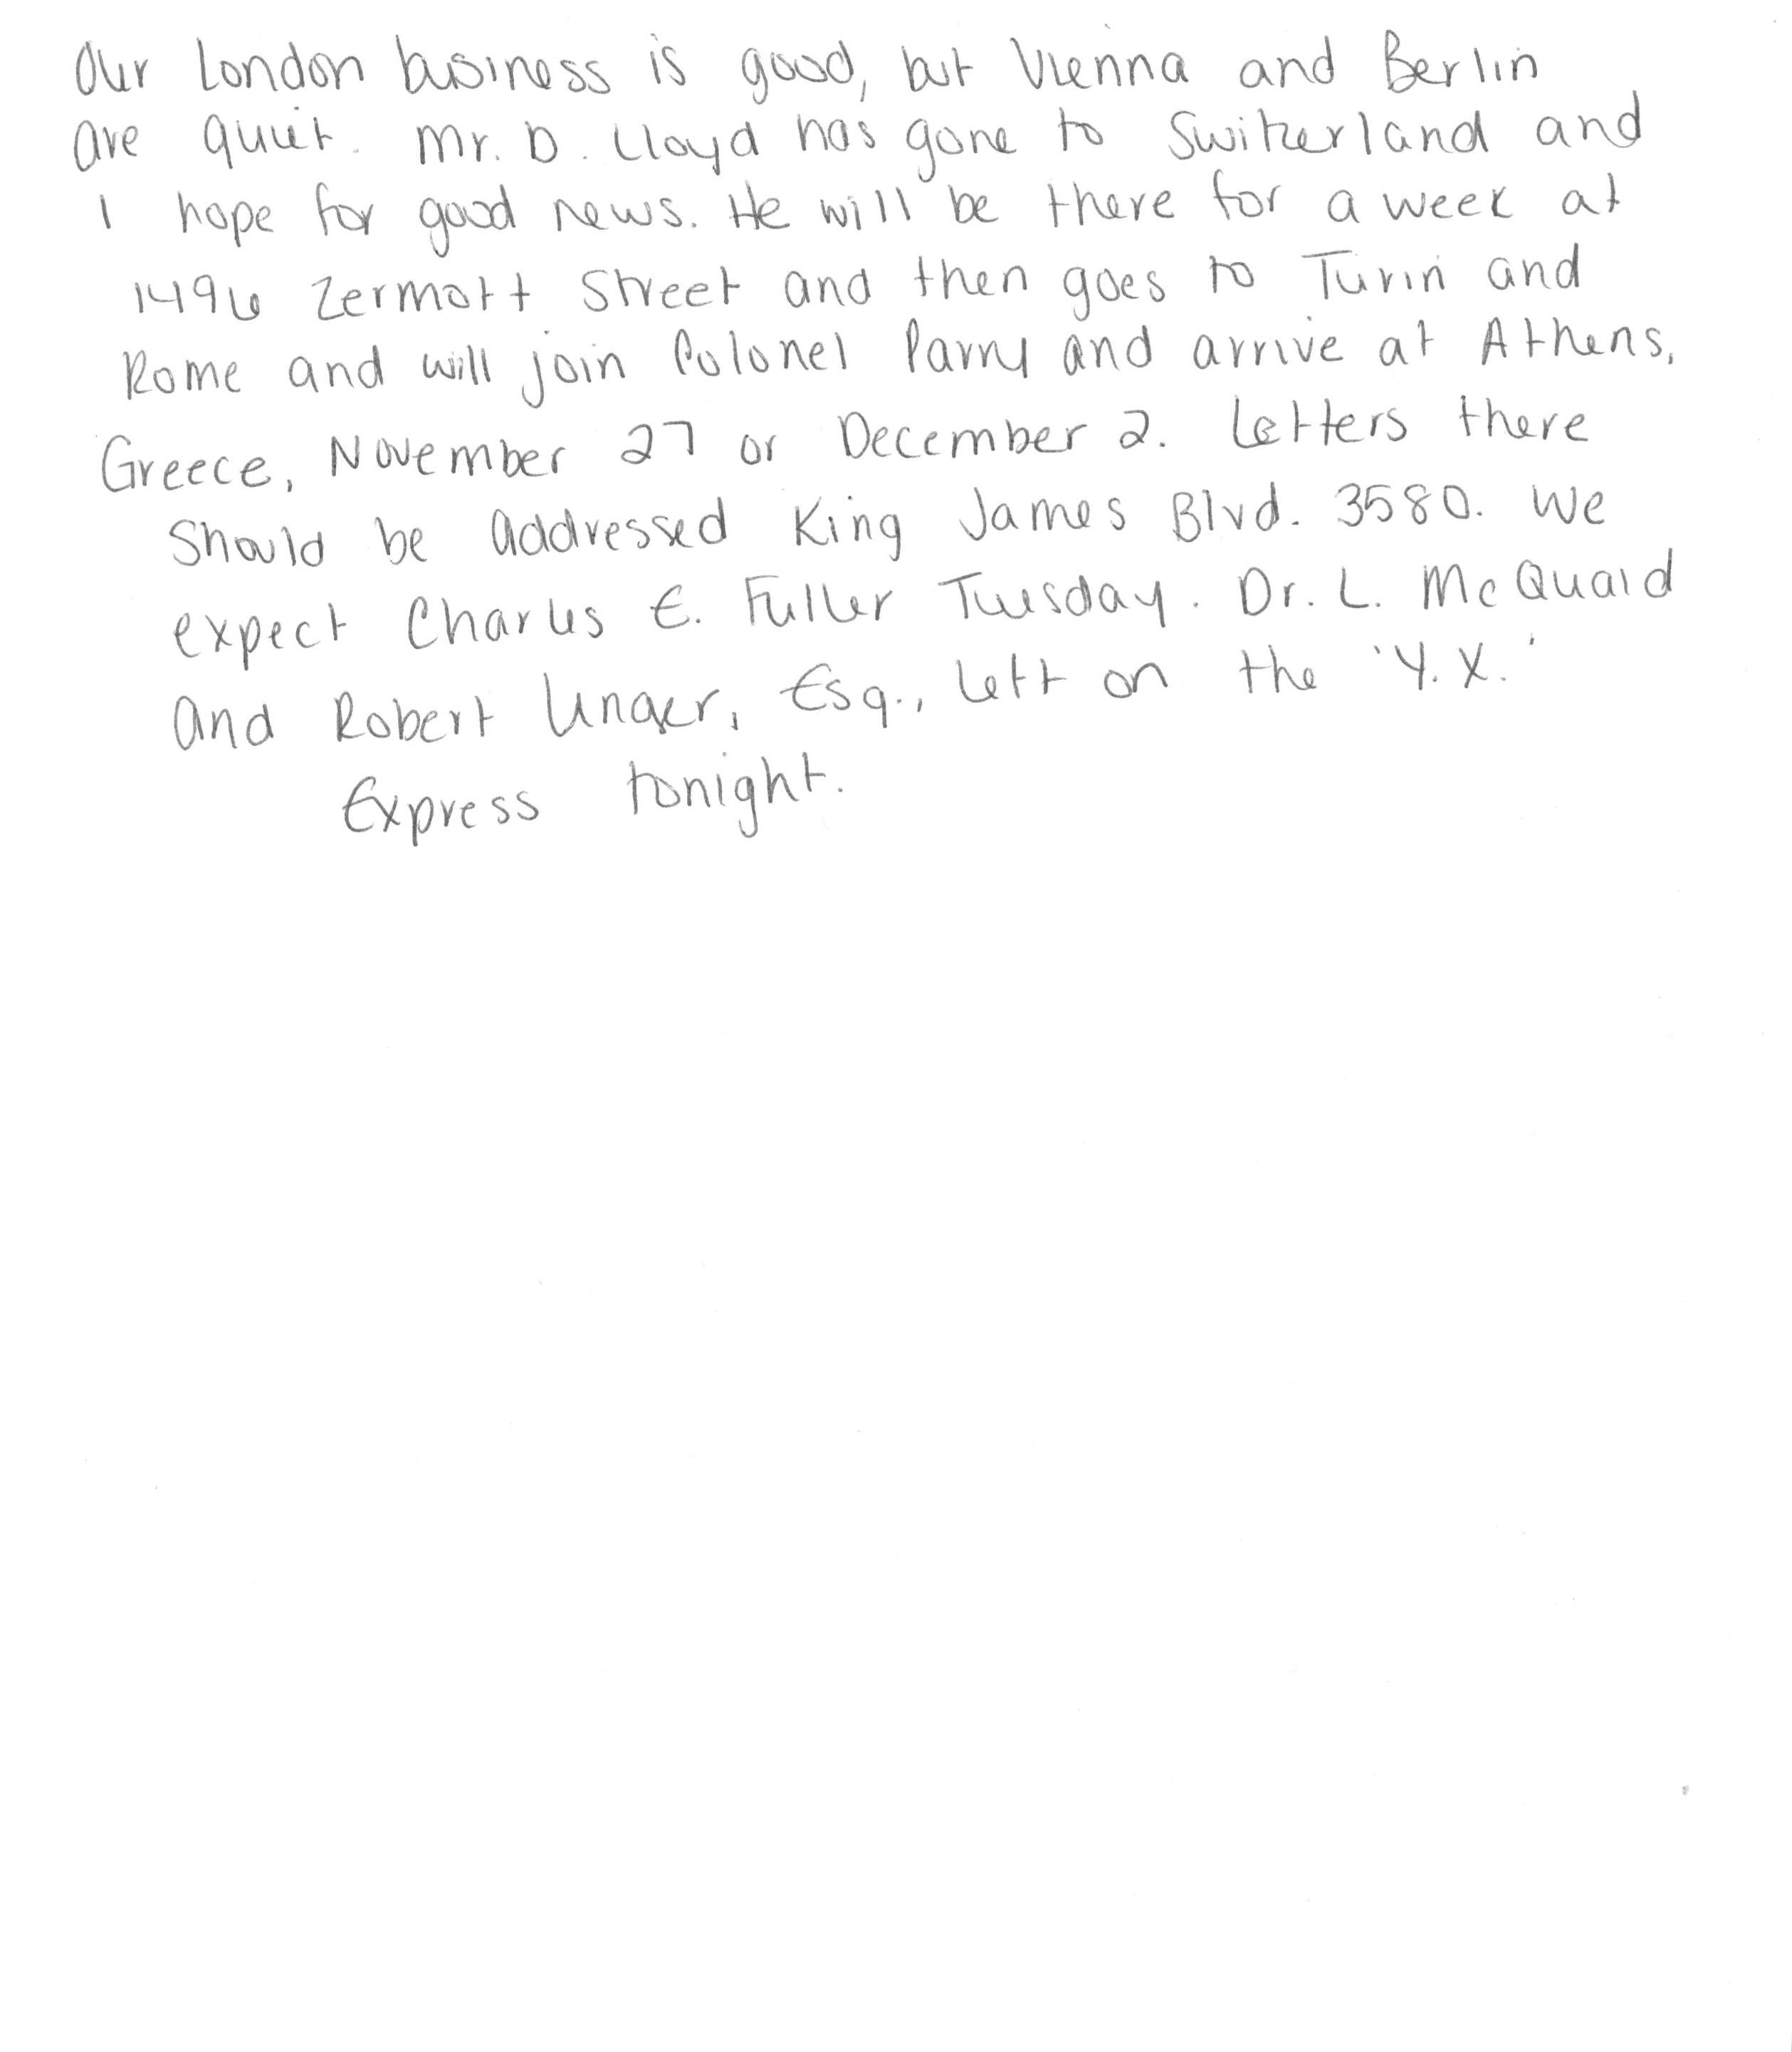 Our London business is good, but Vienna and Berlin
are quiet. Mr. D. Lloyd has gone to Switzerland and
I hope for good news. He will be there for a week at
1496 Zermott Street and then goes to Turin and
Rome and will join Colonel Parry and arrive at Athens,
Greece, November 27 or December 2. Letters there
should be addressed King James Blvd. 3580. We
expect Charles E. Fuller Tuesday. Dr. L. McQuaid
and Robert Unger, Esq., left on the 'Y.X.'
Express tonight.